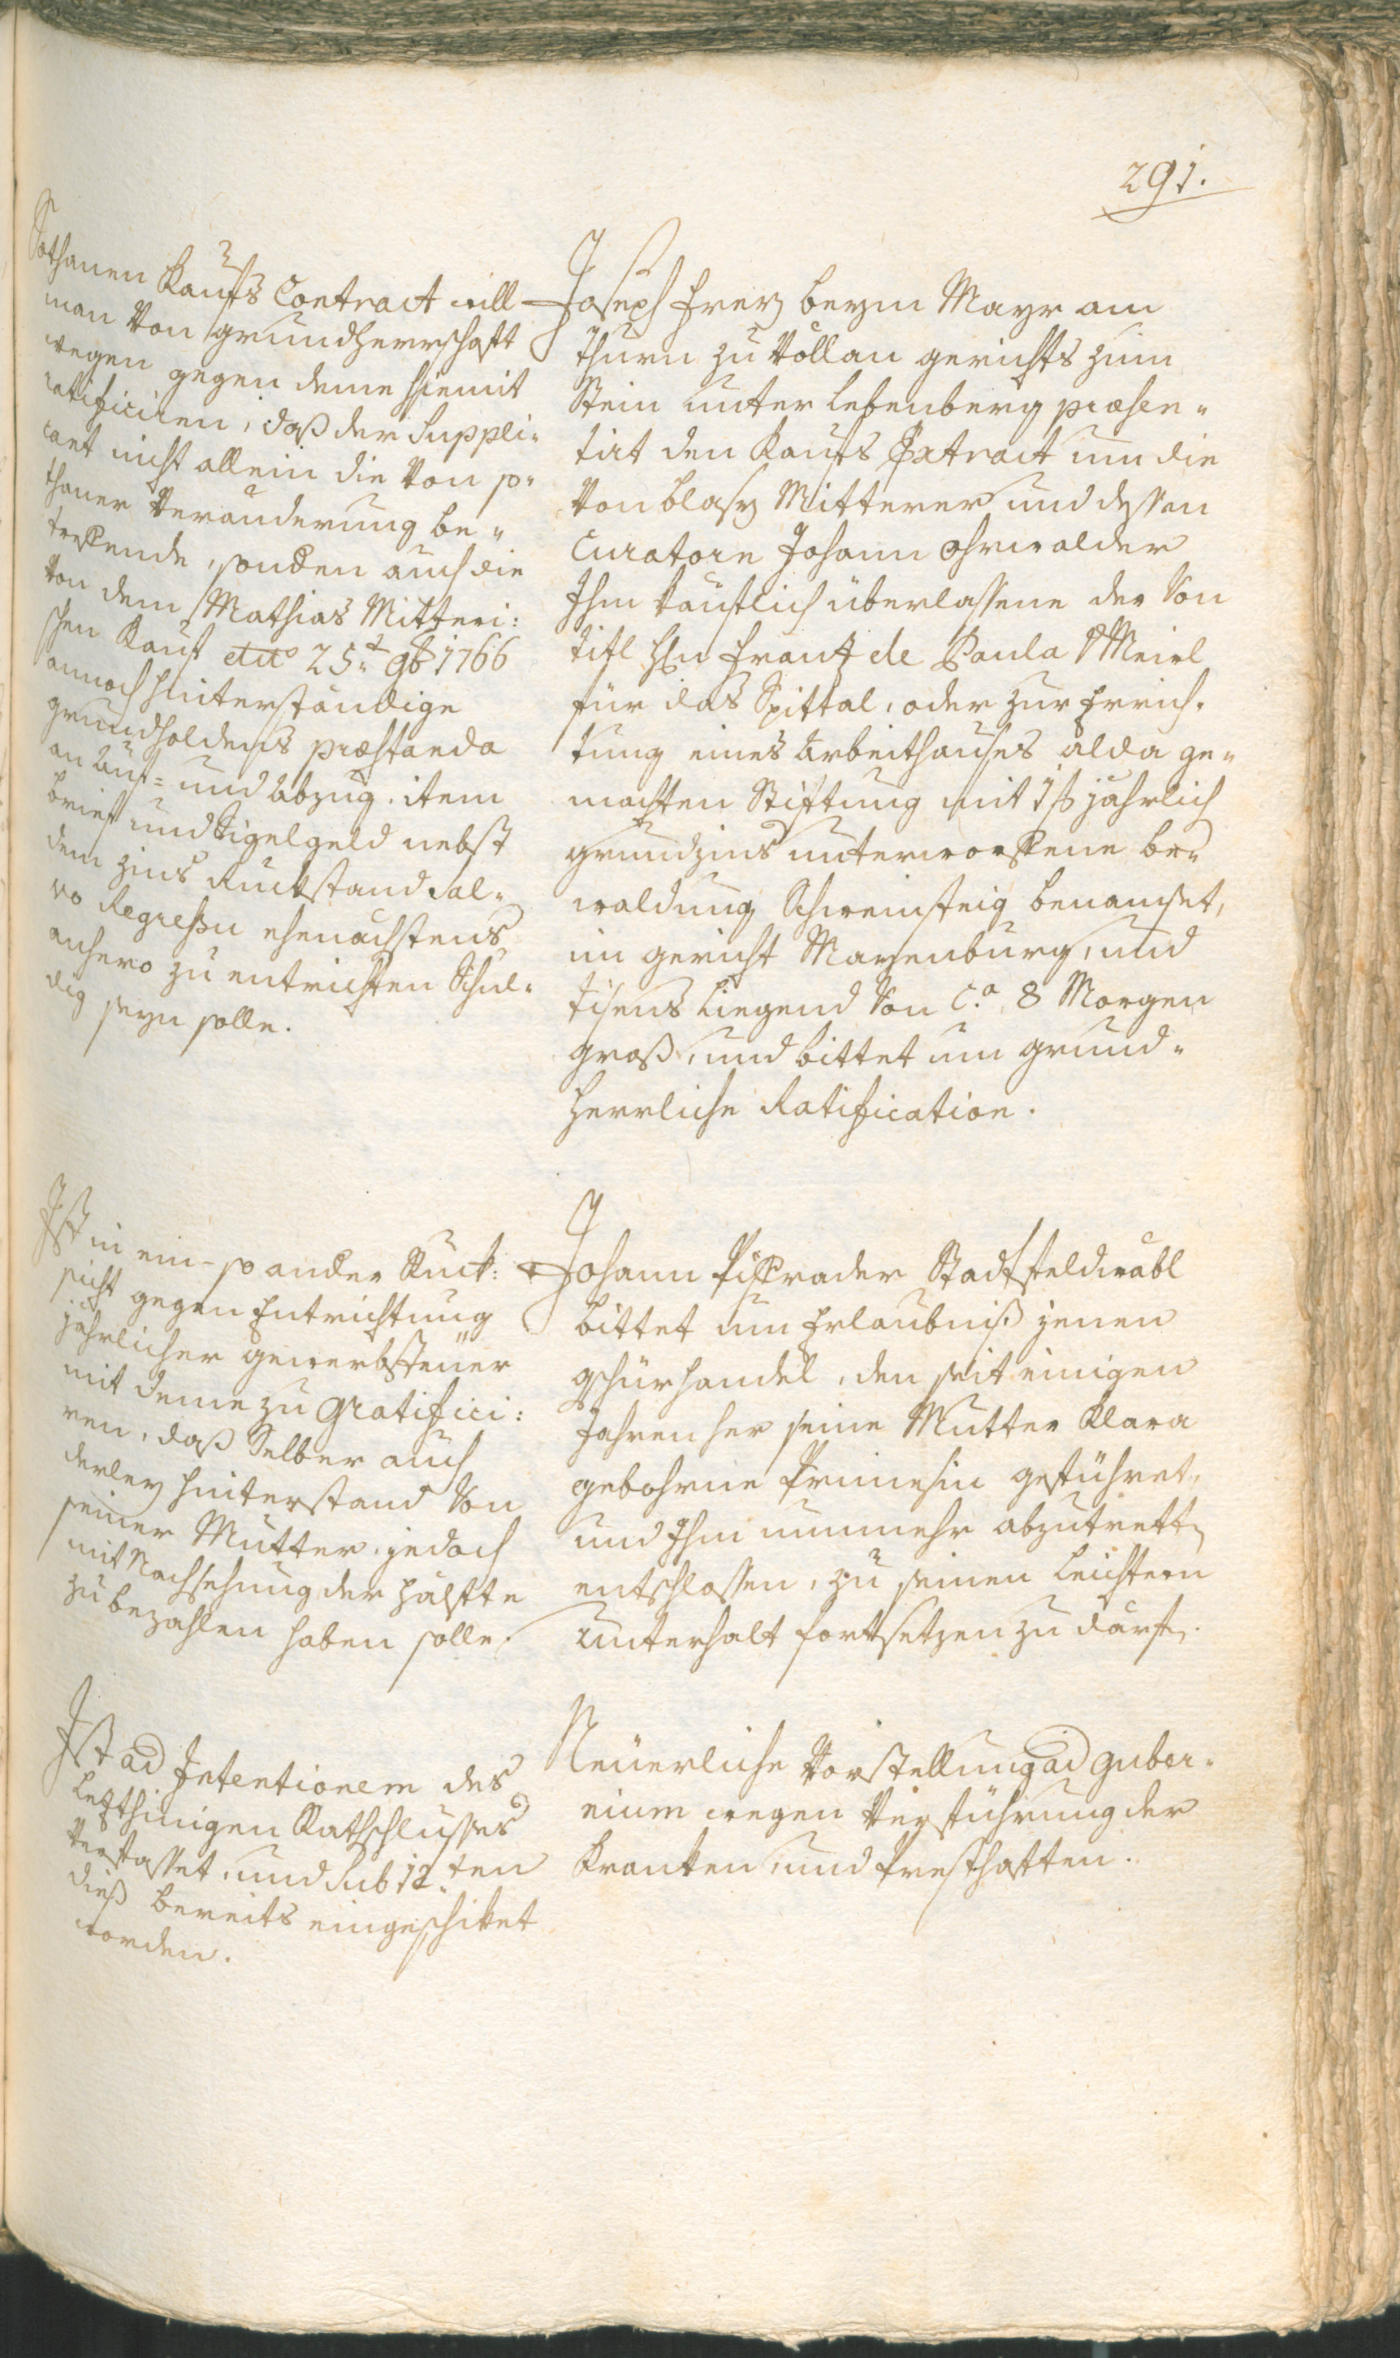 291.
Sothanen Kaufs Contract will
man von grundherrschaft
wegen gegen deme hiemit
ratificiren, daß der Suppli-
cant nicht allein die von so-
thaner Veränderung be-
treffende, sondern auch die
von dem Mathias Mitteri:
schen Kauf 25t 9b 1766
annoch hinterständige
grundholdens præstanda
an Auf- und Abzug. item
brief und Sigelgeld nebst
dem zins Ruckstand sal-
vo Regreßu ehenächstens
anhero zu entrichten Schul-
dig seyn solle.
Joseph Frey beym Mayr am
Thurn zu Völlan gerichts zum
Stein unter Lebenberg præsen-
tirt den Kaufs Extract um die
von Blasy Mitterer und dessen
Curatore Johann Ohrwalder
Ihm käuflich überlassene der von
titl Hln Frantz de Paula Meirl
für das Spittal, oder zur Errich-
tung eines Arbeithauses alda ge-
machten Stiftung mit 1 ß jährlich
grundzins unterworffene be-
waldung Schweinsteig benamset,
im gericht Mayenburg, und
Tisens liegend von C.a 8 Morgen
groß, und bittet um grund-
herrliche Ratification.
Ist in ein- so ander Ruck:
sicht gegen Entrichtung
jährlicher gewerbsteüer
mit deme zu gratifici:
ren, daß Selber auch
derley hinterstand von
seiner Mutter, jedoch
mit Nachsehung der hälfte
zu bezahlen haben solle.
Johann Stadtfeldwäbl
bittet um Erlaubniß jenen
gschürhandel, den seit einigen
Jahren her seine Mutter Klara
gebohrne geführet,
und Ihm nunmehr abzutretten
entschlossen, zu seinen leichtern
Unterhalt fortsetzen zu därfen.
Ist ad Intentionem des
letzthinigen Rathschlusses
verfasset, und sub 12ten
dieß bereits eingeschiket
worden.
Neüerliche Vorstellung ad guber-
nium wegen Verführung der
Kranken, und Presthaften.